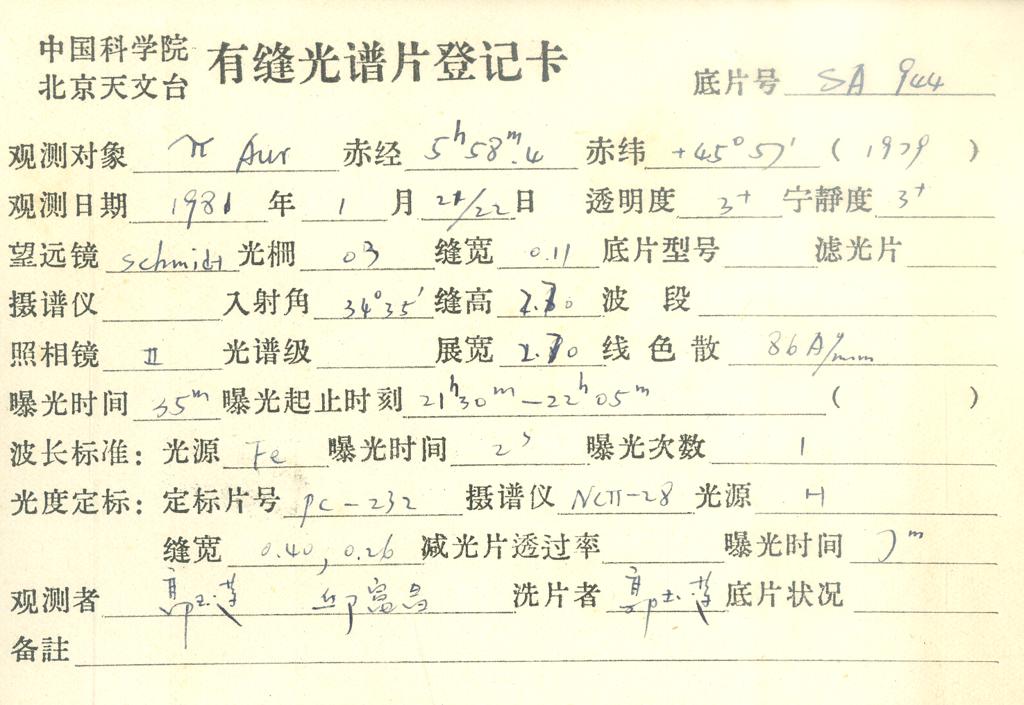 中国科学院
北京天文台
有缝光谱片登记卡
底片号 SA 944
观测对象 π Aur 赤经 5h58m.4 赤纬 +45°57′ (1979)
观测日期 1981 年 1 月 21/22 日 透明度 3+ 宁静度 3+
望远镜 Schmidt 光栅 03 缝宽 0.11 底片型号 滤光片
摄谱仪 入射角 34°35′ 缝高 波段
照相镜 II 光谱级 展宽 线色散 86A/mm
曝光时间 35m 曝光起止时刻 21h30m-22h05m ( )
波长标准: 光源 Fe 曝光时间 2s 曝光次数 1
光度定标: 定标片号 PC-232 摄谱仪 光源 H
缝宽 0.40, 0.26 减光片透过率 曝光时间 7m
观测者 洗片者 底片状况
备註